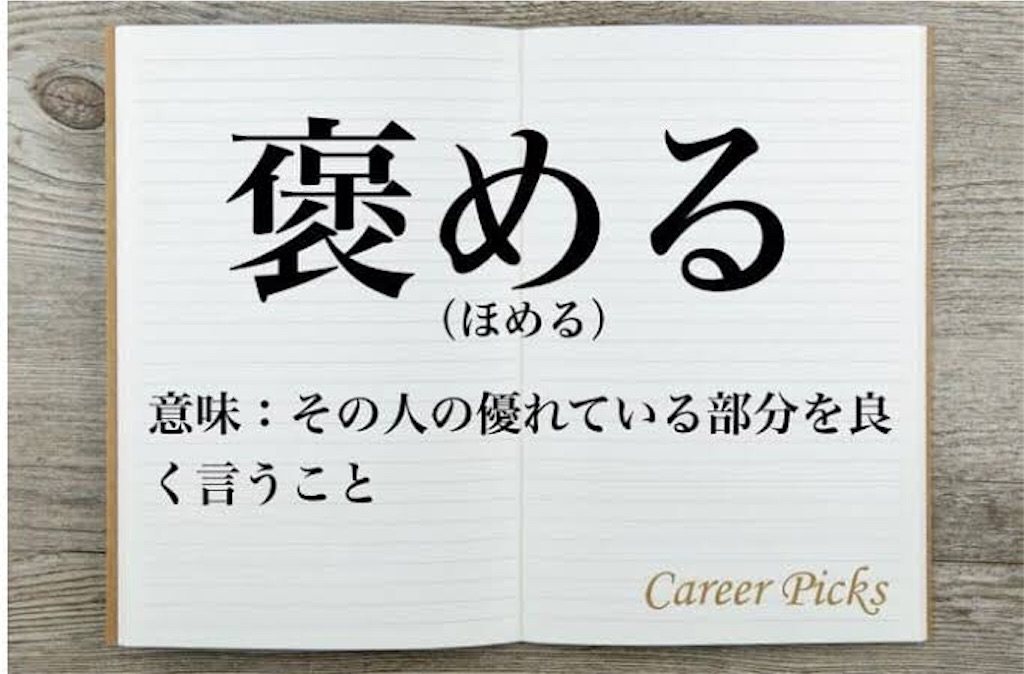 褒める
（ほめる）
意味：その人の優れている部分を良
く言うこと
Career Picks